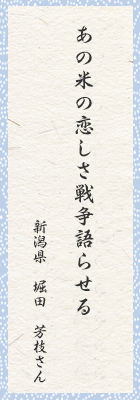 あの米の恋しさ戦争語らせる
新潟県　堀田　芳枝さん